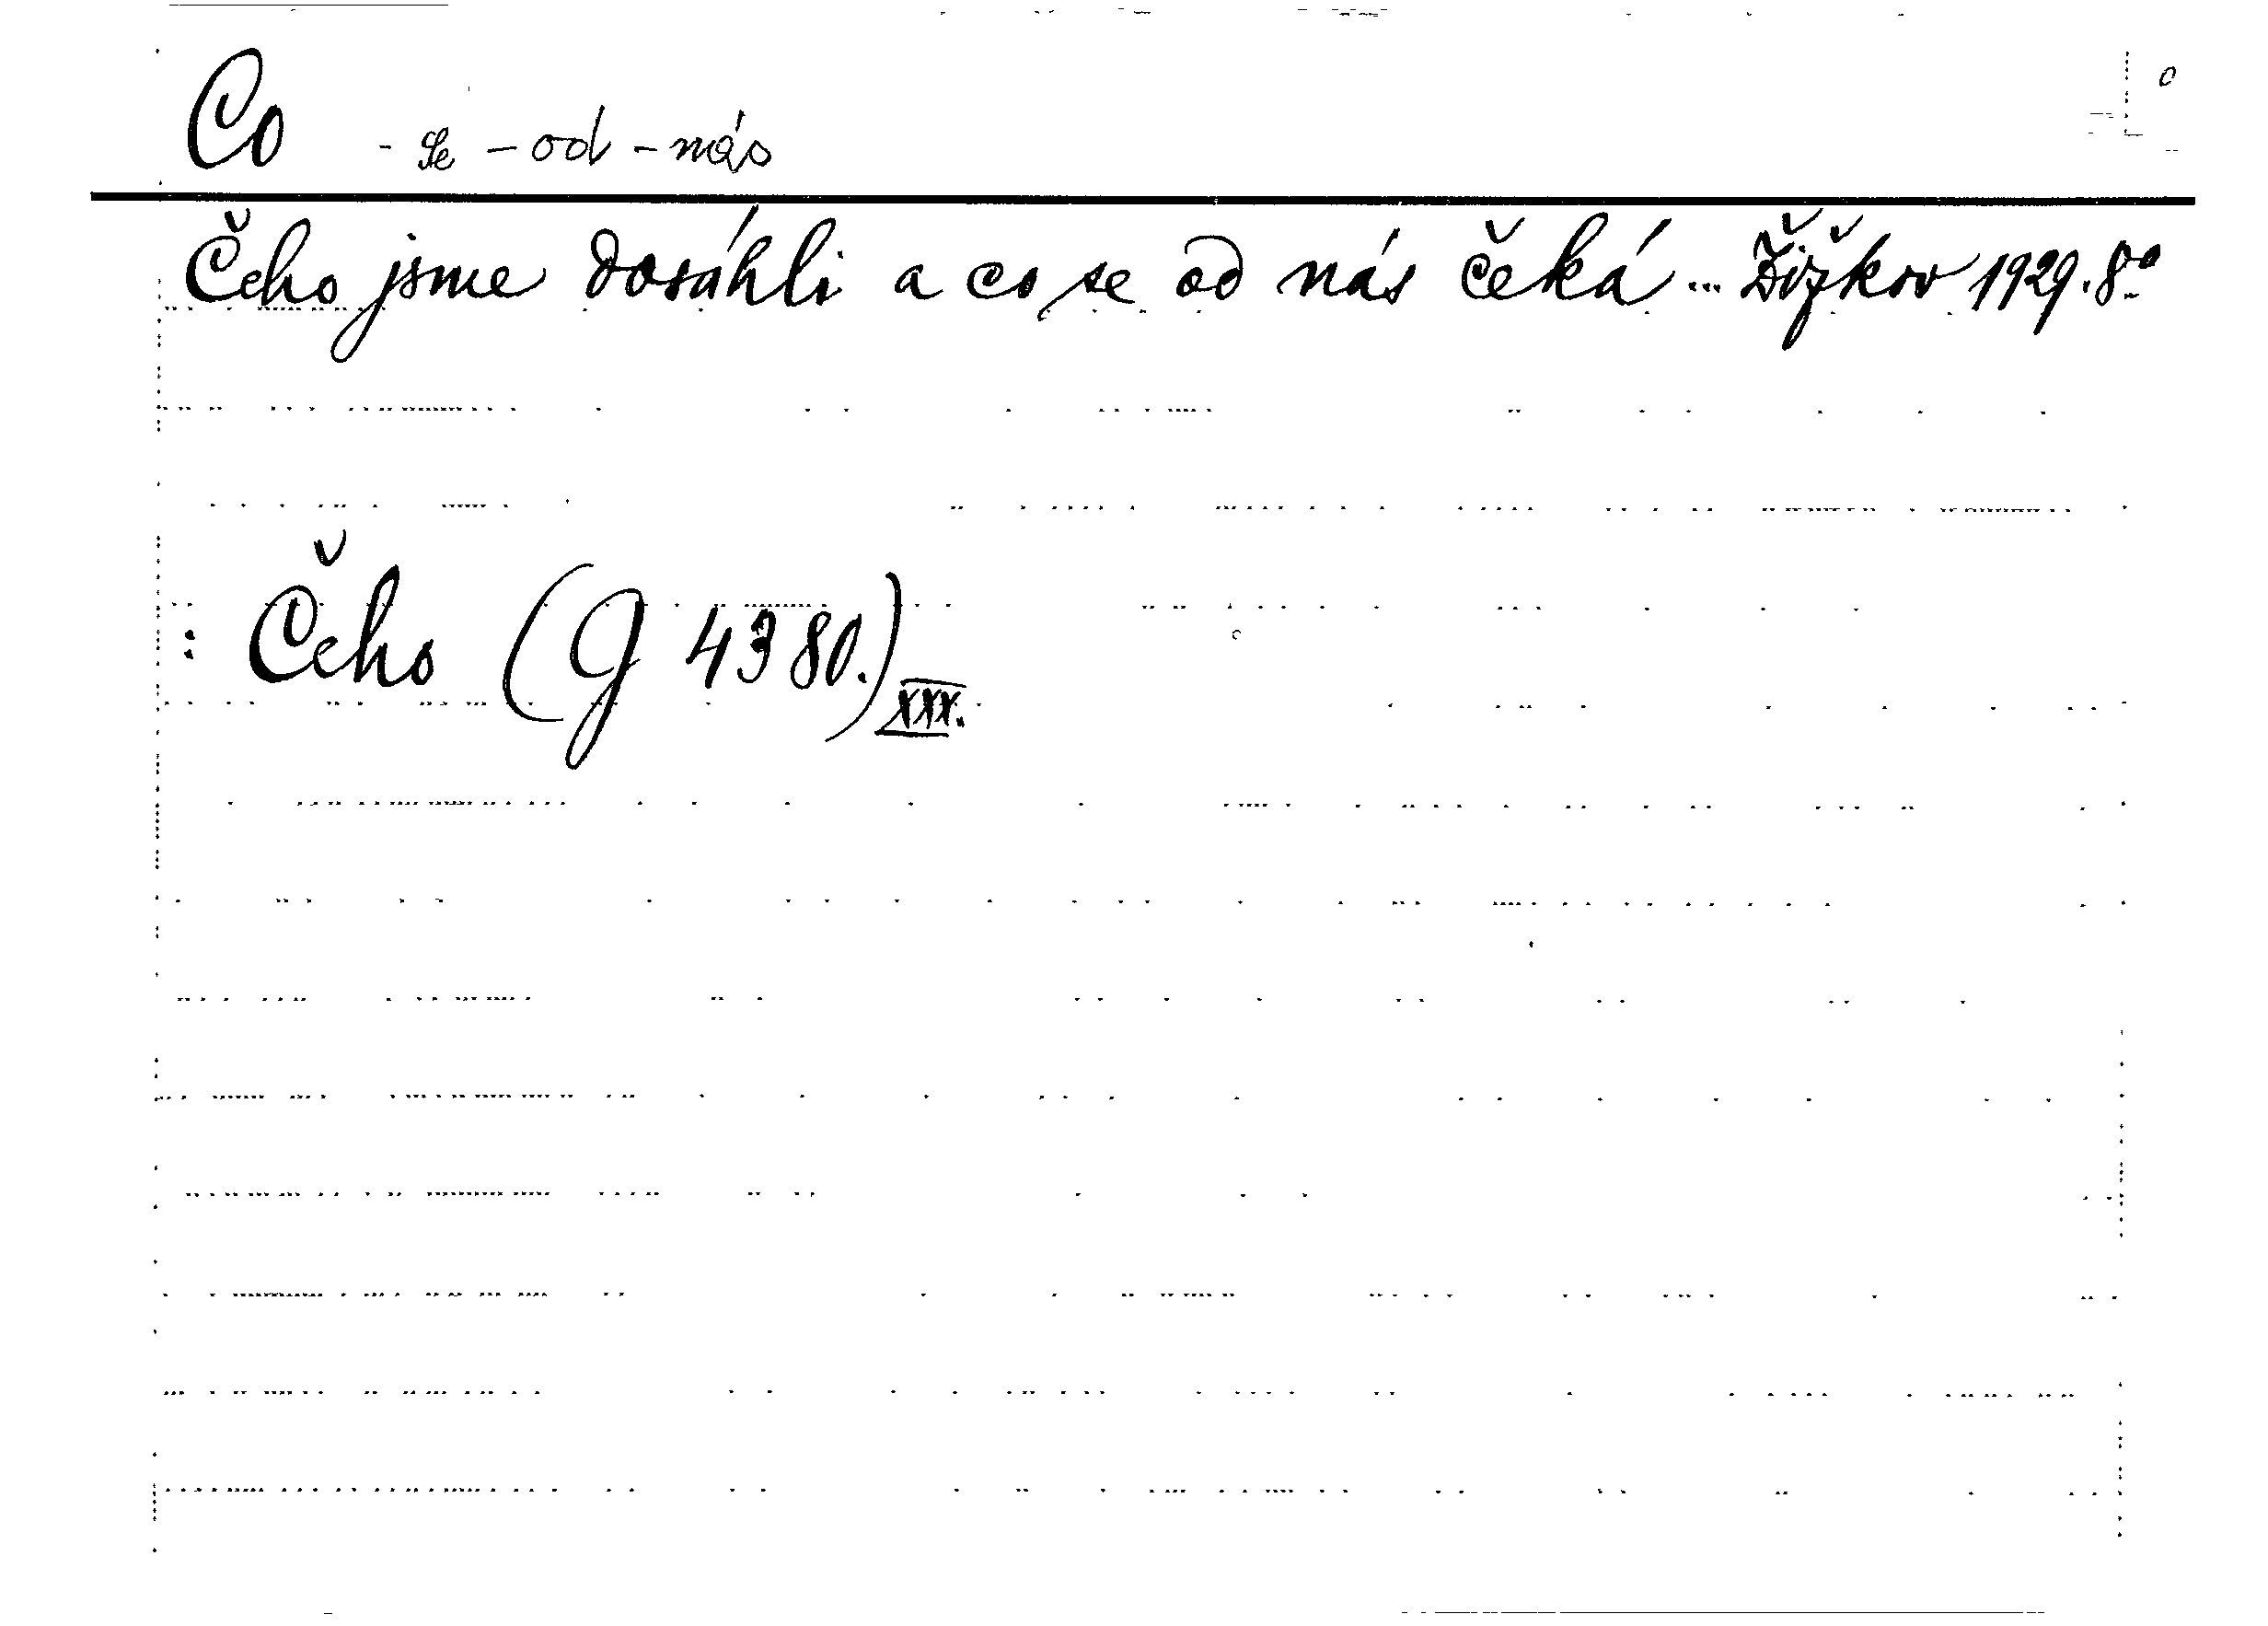 Co - se - od - nás
Čeho jsme dosáhli a co se od nás čeká... Žižkov 1929. 8º
: Čeho (G 4380.) XXX.